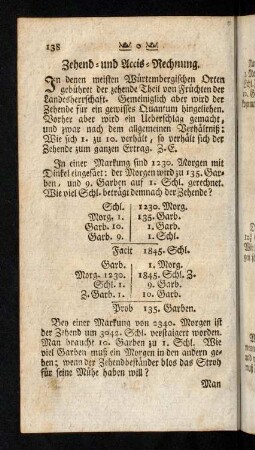 138
Zehend- und Accis-Rechnung.
In denen meisten Würtembergischen Orten
gebühret der zehende Theil von Früchten der
Landesherrschaft. Gemeiniglich aber wird der
Zehende für ein gewisses Quantum hingeliehen.
Vorher aber wird ein Ueberschlag gemacht,
und zwar nach dem allgemeinen Verhältniß:
Wie sich 1. zu 10. verhält, so verhält sich der
Zehende zum ganzen Ertrag. Z.E.
In einer Markung sind 1230. Morgen mit
Dinkel eingesäet: der Morgen wird zu 135. Gar-
ben, und 9. Garben auf 1. Schl. gerechnet.
Wie viel Schl. beträgt demnach der Zehende?
Schl. 1230. Morg.
Morg. 1. 135. Garb.
Garb. 10. 1. Garb.
Garb. 9. 1. Schl.
Facit 1845. Schl.
Garb. 1. Morg.
Morg. 1230. 1845. Schl. Z.
Schl. 1. 9. Garb.
Z. Garb. 1. 10. Garb.
Prob 135. Garben.
Bey einer Markung von 2340. Morgen ist
der Zehend um 3042. Schl. verstaigert worden.
Man braucht 10. Garben zu 1. Schl. Wie
viel Garben muß ein Morgen in den andern ge-
ben; wenn der Zehendbeständer blos das Stroh
für seine Mühe haben will?
Man